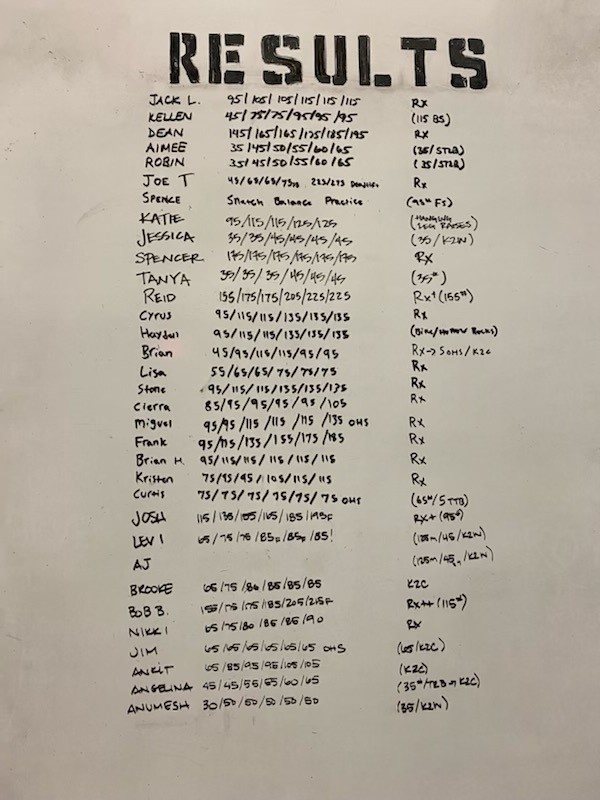 RESULTS
JACK L. 95/105/105/115/115/115 Rx
KELLEN 45/75/75/95/95/95 (115 BS)
DEAN 145/165/165/175/185/195 Rx
AIMEE 35/45/50/55/60/65 (35/STLB)
ROBIN 35/45/50/55/60/65 (35/STLB)
JOE T 45/65/65/75 225/275 Rx
SPENCE Snatch Balance Practice (95# FS)
KATIE 95/115/115/125/125 (HANGING LEG RAISES)
JESSICA 35/35/45/45/45/45 (35/K2W)
SPENCER 175/175/175/175/175/175 Rx
TANYA 35/35/35/45/45/45 (35#)
REID 155/175/175/205/225/225 Rx+(155#)
Cyrus 95/115/115/135/135/135 Rx
Hayden 95/115/115/135/135/135 (Bike/Hollow Rocks)
Brian 45/95/115/115/95/95 Rx→5 OHS/K2C
Lisa 55/65/65/75/75/75 Rx
Stone 95/115/115/135/135/135 Rx
Cierra 85/95/95/95/95/105 Rx
Miguel 95/95/115/115/115/135 OHS Rx
Frank 95/115/135/155/175/185 Rx
Brian H. 95/115/115/115/115/115 Rx
Kristen 75/95/95/105/115/115 Rx
Curtis 75/75/75/75/75/75 OHS (65#/5 TTB)
JOSH 115/135/155/165/185/195F Rx+(95#)
LEVI 65/75/75/85F/85F/85! (125m/45/K2W)
AJ (125m/45/K2W)
BROOKE 65/75/80/85/85/85 K2C
BOB B. 155/175/175/185/205/215F Rx++(115#)
NIKKI 65/75/80/85/85/90 Rx
JIM 65/65/65/65/65/65 OHS (65/K2C)
ANKIT 65/85/95/95/105/105 (K2C)
ANGELINA 45/45/55/55/60/65 (35#/TTB→K2C)
ANUMESH 30/50/50/50/50/50 (35/K2W)